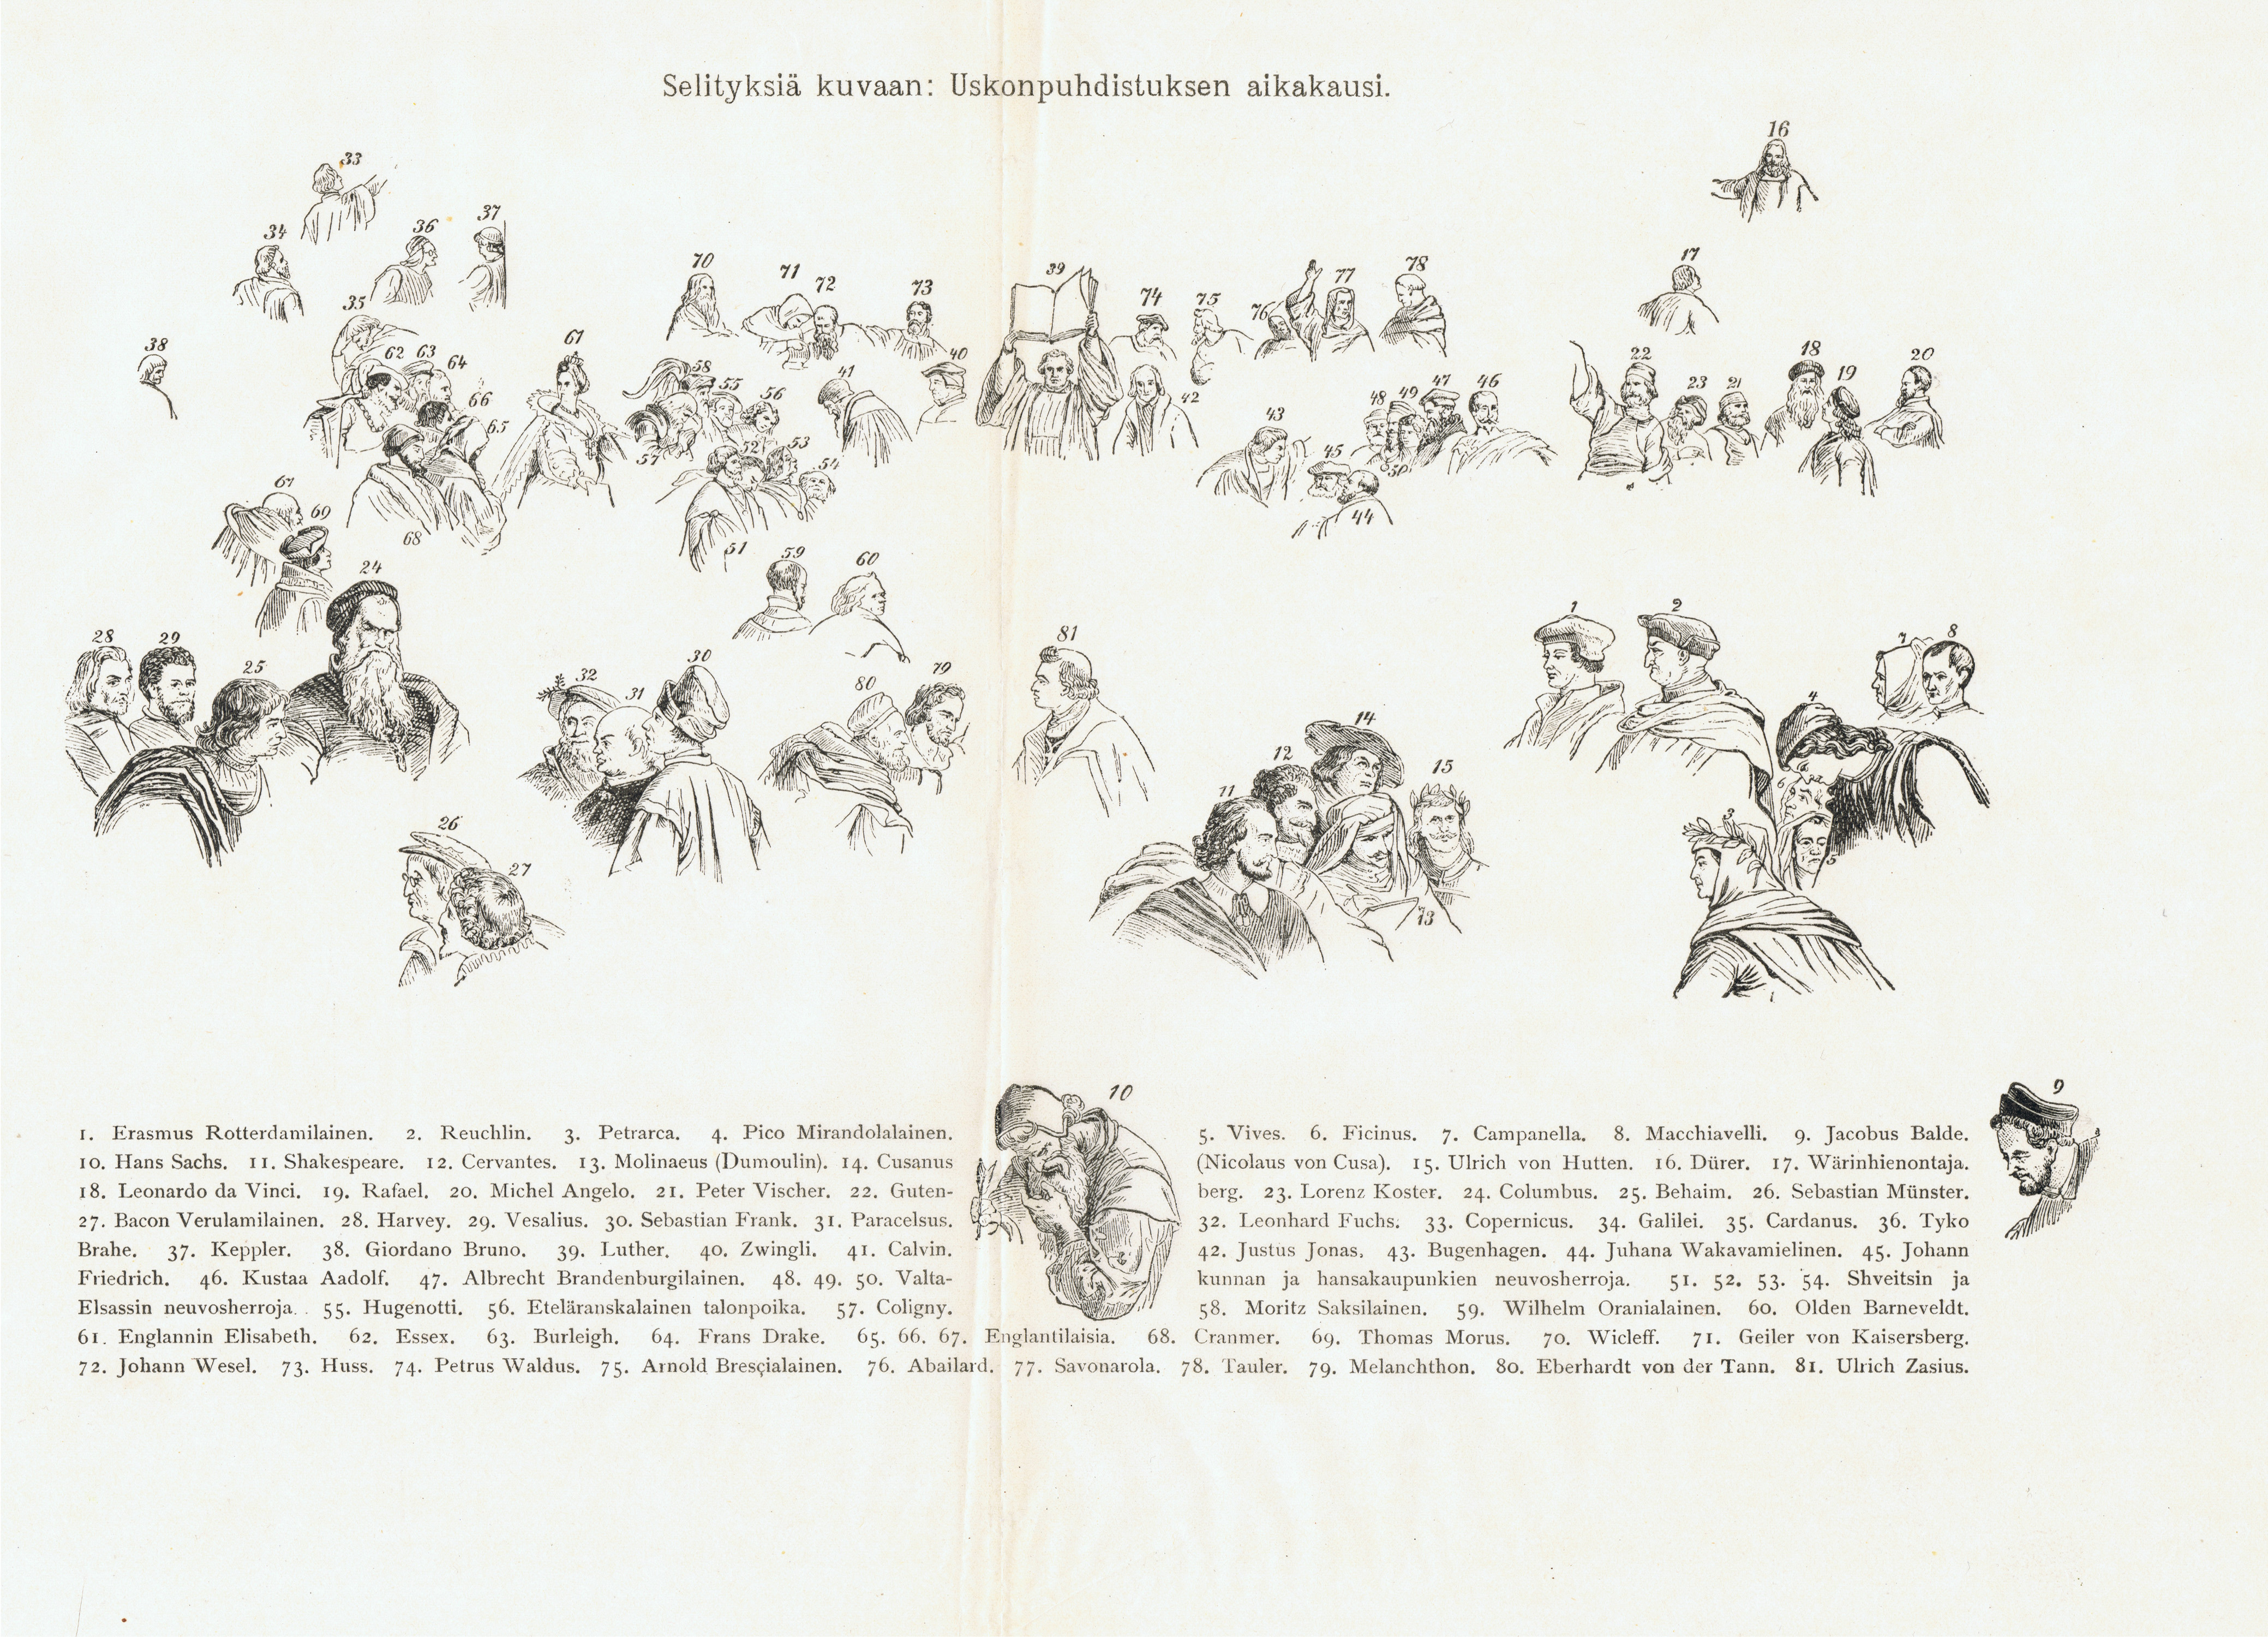 Selityksiä kuvaan: Uskonpuhdistuksen aikakausi.
16
33
37
36
34
17
70
71
72
73
39
74
75
76
77
78
35
38
62
63
64
66
65
61
58
55
56
57
52
53
54
51
41
40
42
43
45
44
48
49
47
50
46
22
23
21
18
19
20
67
69
68
24
59
60
28
29
25
32
31
30
80
79
81
1
2
7
8
4
6
5
3
14
12
11
15
13
26
27
10
9
1. Erasmus Rotterdamilainen. 2. Reuchlin. 3. Petrarca. 4. Pico Mirandolalainen. 5. Vives. 6. Ficinus. 7. Campanella. 8. Macchiavelli. 9. Jacobus Balde.
10. Hans Sachs. 11. Shakespeare. 12. Cervantes. 13. Molinaeus (Dumoulin). 14. Cusanus (Nicolaus von Cusa). 15. Ulrich von Hutten. 16. Dürer. 17. Wärinhienontaja.
18. Leonardo da Vinci. 19. Rafael. 20. Michel Angelo. 21. Peter Vischer. 22. Guten-berg. 23. Lorenz Koster. 24. Columbus. 25. Behaim. 26. Sebastian Münster.
27. Bacon Verulamilainen. 28. Harvey. 29. Vesalius. 30. Sebastian Frank. 31. Paracelsus. 32. Leonhard Fuchs. 33. Copernicus. 34. Galilei. 35. Cardanus. 36. Tyko
Brahe. 37. Keppler. 38. Giordano Bruno. 39. Luther. 40. Zwingli. 41. Calvin. 42. Justus Jonas. 43. Bugenhagen. 44. Juhana Wakavamielinen. 45. Johann
Friedrich. 46. Kustaa Aadolf. 47. Albrecht Brandenburgilainen. 48. 49. 50. Valta-kunnan ja hansakaupunkien neuvosherroja. 51. 52. 53. 54. Shveitsin ja
Elsassin neuvosherroja. 55. Hugenotti. 56. Eteläranskalainen talonpoika. 57. Coligny. 58. Moritz Saksilainen. 59. Wilhelm Oranialainen. 60. Olden Barneveldt.
61. Englannin Elisabeth. 62. Essex. 63. Burleigh. 64. Frans Drake. 65. 66. 67. Englantilaisia. 68. Cranmer. 69. Thomas Morus. 70. Wicleff. 71. Geiler von Kaisersberg.
72. Johann Wesel. 73. Huss. 74. Petrus Waldus. 75. Arnold Bresçialainen. 76. Abailard. 77. Savonarola. 78. Tauler. 79. Melanchthon. 80. Eberhardt von der Tann. 81. Ulrich Zasius.